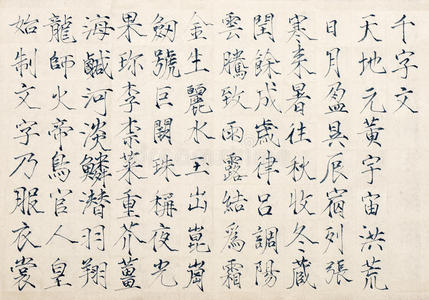 千字文
天地元黃宇宙洪荒
日月盈昃辰宿列張
寒來暑往秋收冬藏
閏餘成歲律呂調陽
雲騰致雨露結爲霜
金生麗水玉出崑崗
釼號巨闕珠稱夜光
果珎李柰菜重芥薑
海鹹河淡鱗潛羽翔
龍師火帝鳥官人皇
始制文字乃服衣裳